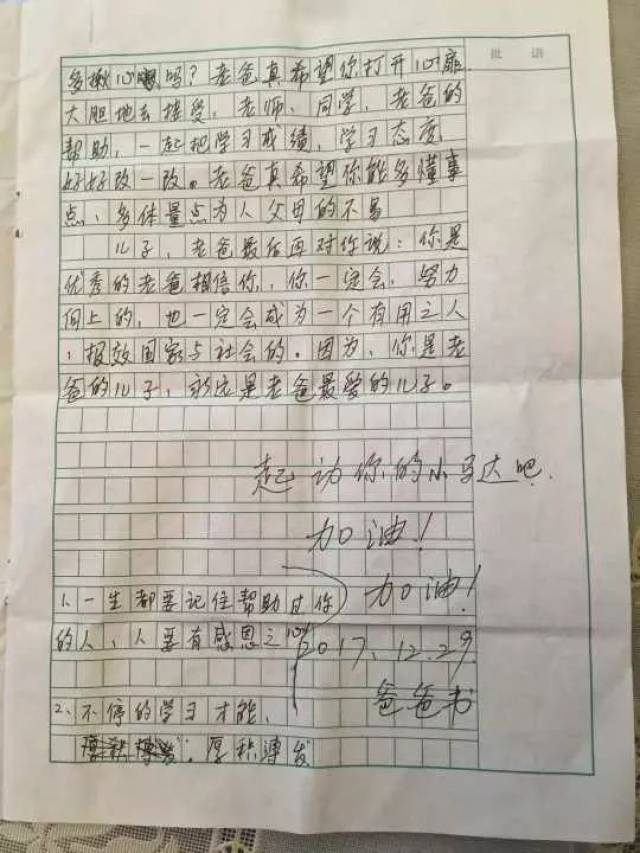 批语
多揪心吗？老爸真希望你打开心扉
大胆地去接受，老师、同学，老爸的
帮助，一起把学习成绩，学习态度
好好改一改。老爸真希望你能多懂事
点、多体量点为人父母的不易
儿子，老爸最后再对你说：你是
优秀的老爸相信你，你一定会，努力
向上的，也一定会成为一个有用之人
，报效国家与社会的。因为，你是老
爸的儿子，永远是老爸最爱的儿子。
起动你的小马达吧.
加油！
加油！
1、一生都要记住帮助过你
的人，人要有感恩之心
2017、12.29
爸爸书
2、不停的学习才能，
厚积薄发